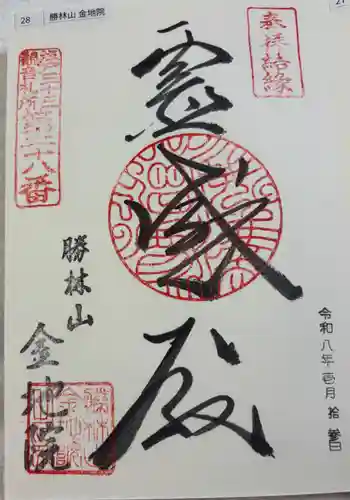 28 勝林山 金地院
27
奉拝結縁
霊感殿
江戸三十三
観音札所第二十八番
勝林山
金地院
令和八年壱月拾参日